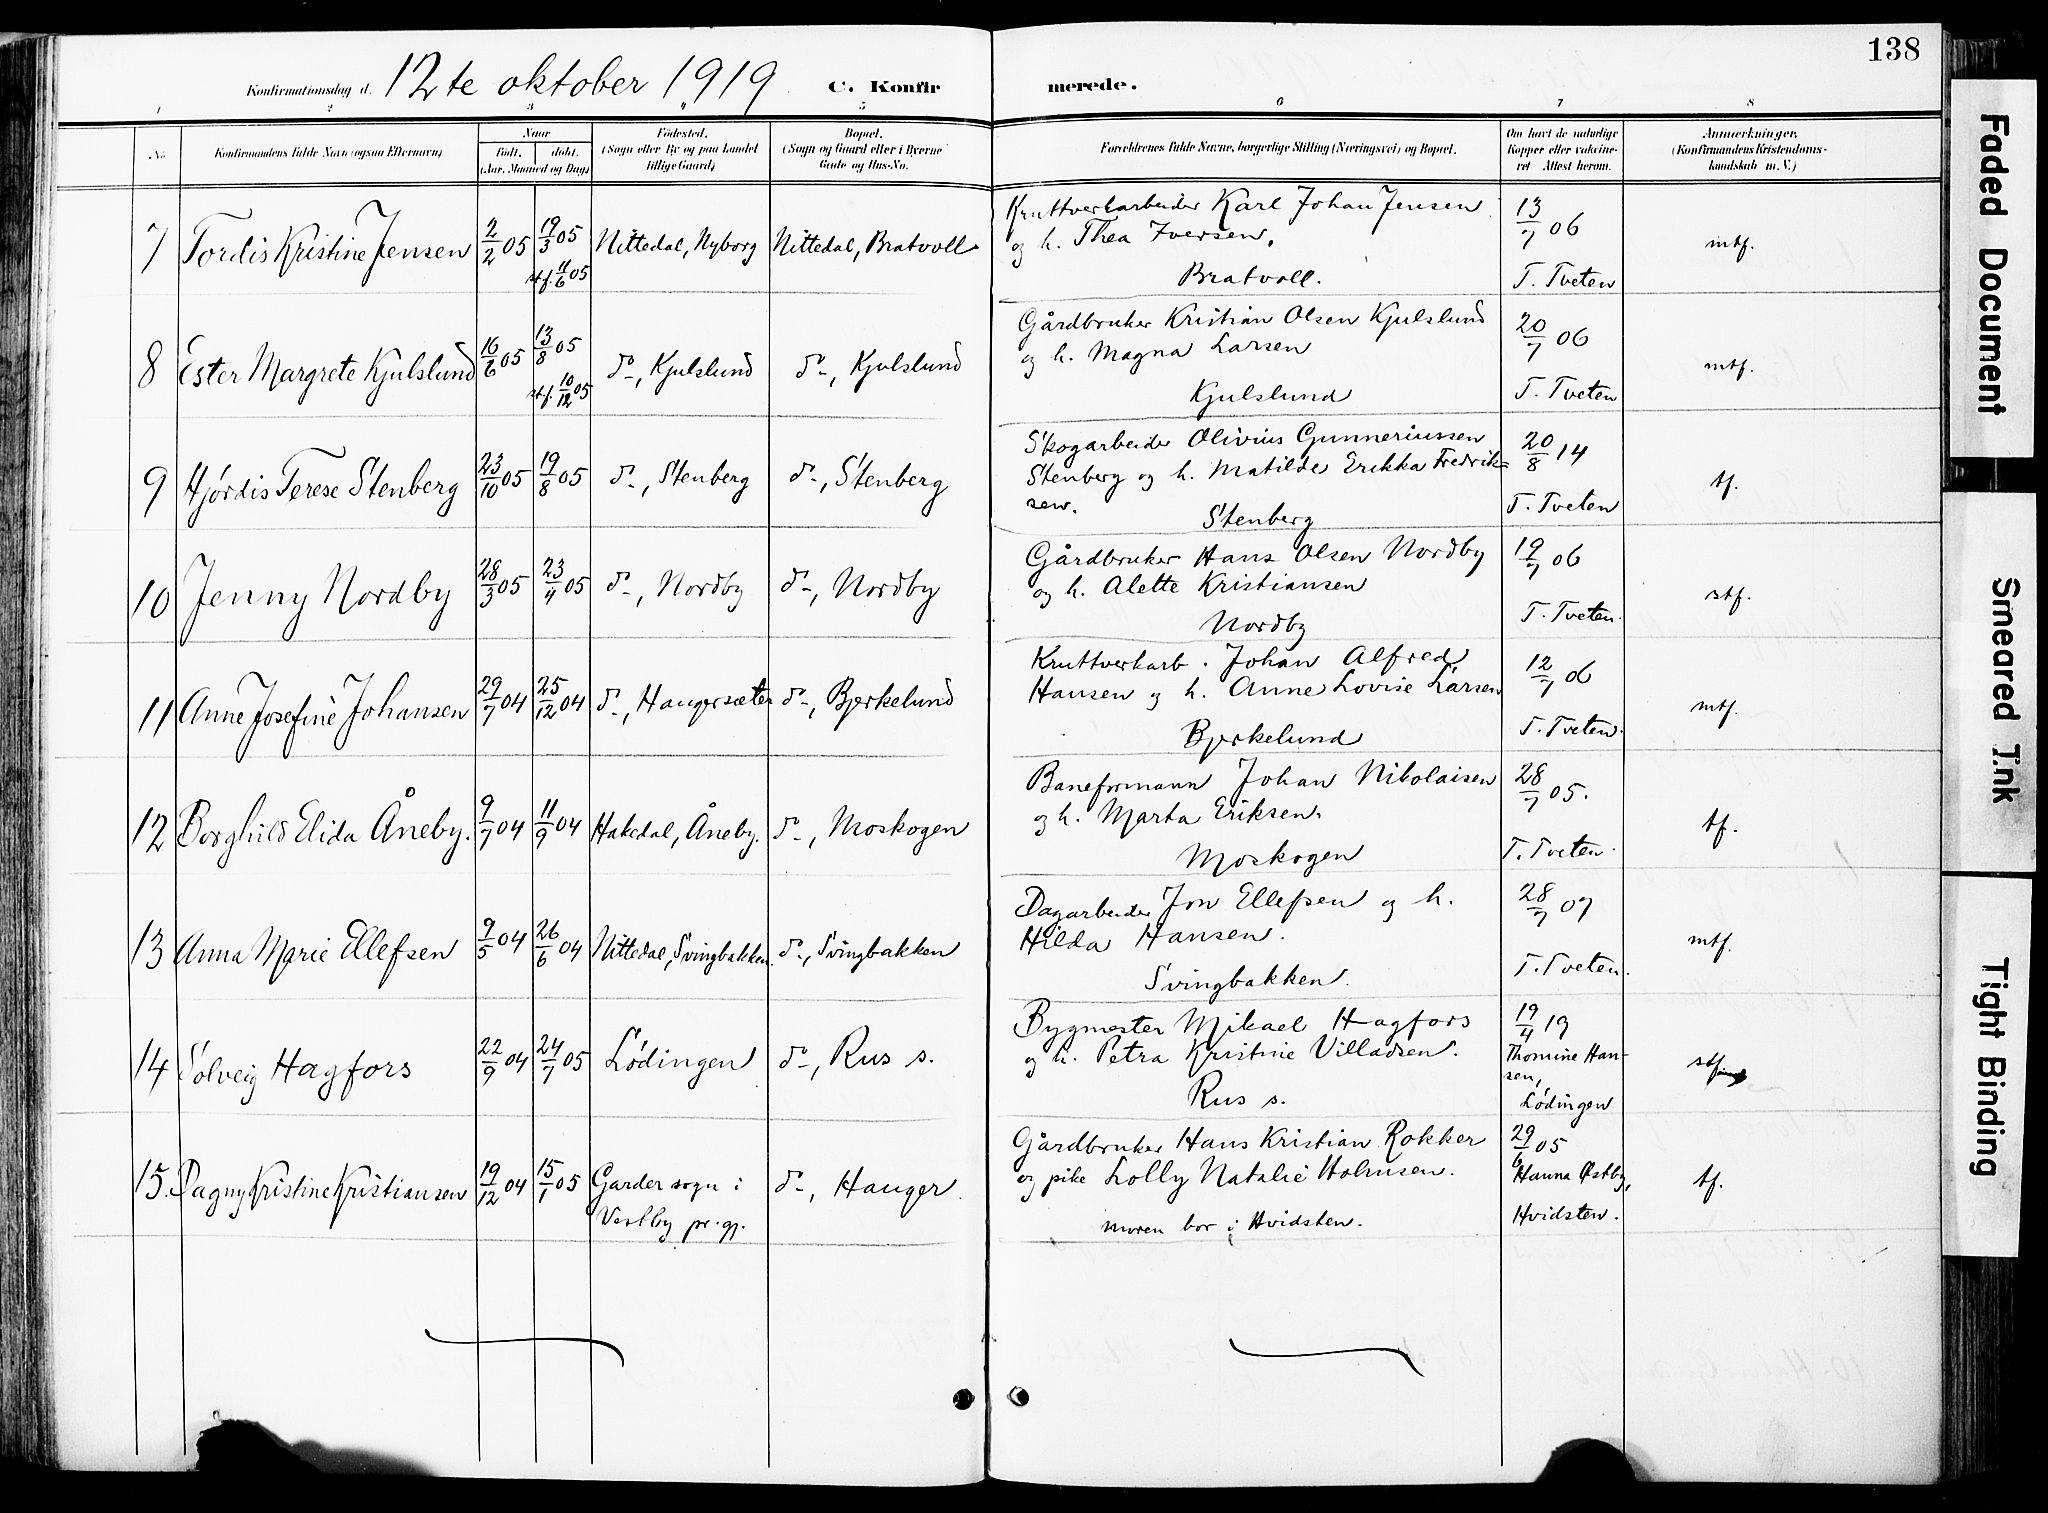 138
Konfirmationsdag d. 12te oktober 1919 C. Konfirmerede.
1 2 3 4 5 6 7 8
No. Konfirmandens fulde Navn (ogsaa Efternavn) Naar født. døbt. (Aar, Maaned og Dag) Fødested. (Sogn eller By og paa Landet tillige Gaard) Bopæl. (Sogn og Gaard eller i Byerne Gade og Hus-No. Forældrenes fulde Navne, borgerlige Stilling (Næringsvei) og Bopæl. Om havt de naturlige Kopper eller vaccineret Attest herom. Anmærkninger. (Konfirmandens Kristendomskundskab m. V.)
7 Tordis Kristine Jensen 2/2 05 19/3 05 st.f. 11/6 05 Nittedal, Nyborg Nittedal, Bratvoll Kruttverkarbeider Karl Johan Jensen 13/7 06 mtf.
og h. Thea Iversen,
Bratvoll. T. Tveten
8 Ester Margrete Kjulslund 16/6 05 13/8 05 st.f. 10/12 05 do, Kjulslund do, Kjulslund Gårdbruker Kristian Olsen Kjulslund 20/7 06 mtf.
og h. Magna Larsen
Kjulslund T. Tveten
9 Hjördis Terese Stenberg 23/10 05 19/8 05 do, Stenberg do, Stenberg Skogarbeider Olivius Gunneriussen 20/8 14 tf.
Stenberg og h. Matilde Erikka Fredrik=
sen. Stenberg T. Tveten
10 Jenny Nordby 28/3 05 23/4 05 do, Nordby do, Nordby Gårdbruker Hans Olsen Nordby 19/7 06 stf.
og h. Alette Kristiansen
Nordby T. Tveten.
11 Anne Josefine Johansen 29/7 04 25/12 04 do, Haugersæter do, Bjerkelund Kruttverkarb. Johan Alfred 12/7 06 mtf.
Hansen og h. Anne Lovise Larsen
Bjerkelund T. Tveten.
12 Borghild Elida Åneby. 9/7 04 11/9 04 Hakedal, Åneby. do, Moskogen Baneformann Johan Nikolaisen 28/7 05. tf.
og h. Marta Eriksen.
Moskogen T. Tveten.
13 Anna Marie Ellefsen 9/5 04 26/6 04 Nittedal, Svingbakken. do, Svingbakken Dagarbeider Jon Ellefsen og h. 28/7 07 mtf.
Hilda Hansen.
Svingbakken. T. Tveten.
14 Solveig Hagfors 22/9 04 24/7 05 Lödingen do, Rus s. Bygmester Mikael Hagfors 19/4 19 stf
og h. Petra Kristine Villadsen. Thomine Han-
sen,
Rus s. Lödingen
15. Dagny Kristine Kristiansen 19/12 04 15/1 05 Garder sogn i do, Hauger. Gårdbruker Hans Kristian Rokker 29/6 05 tf.
og pike Lolly Natalie Holmsen. Hanna Østby,
Vestby pr.gj. moren bor i Hvidsten. Hvidsten.
Faded Document
Smeared Ink
Tight Binding